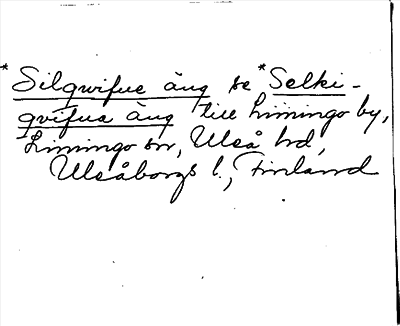 *Silqwifue äng se *Selki-
qvifua äng till Limingo by,
Limingo sn, Uleå hd,
Uleåborgs l., Finland